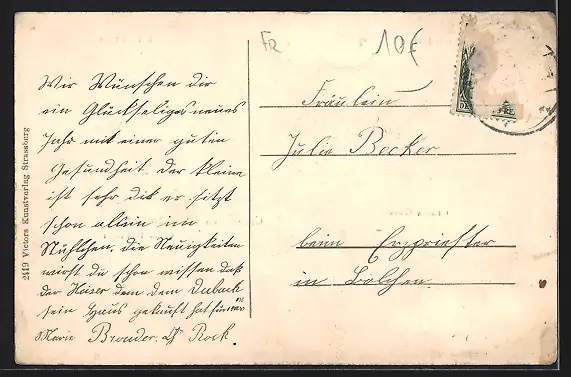 FR 10€
Wir Wünschen dir
ein Glückseliges neues
Jahr mit einer guten
Gesundheit. Der kleine
ist sehr dik er sitzt
schon allein im
Stühlchen, die Neuigkeiten
wirst du schon wissen daß
der Keiser dem dem
sein Haus gekauft hat für
Marie Bronder. Rock.
Fräulein
Julie Becker
beim Erzpriester
in Bolchen.
2419 Victors Kunstverlag Strassburg